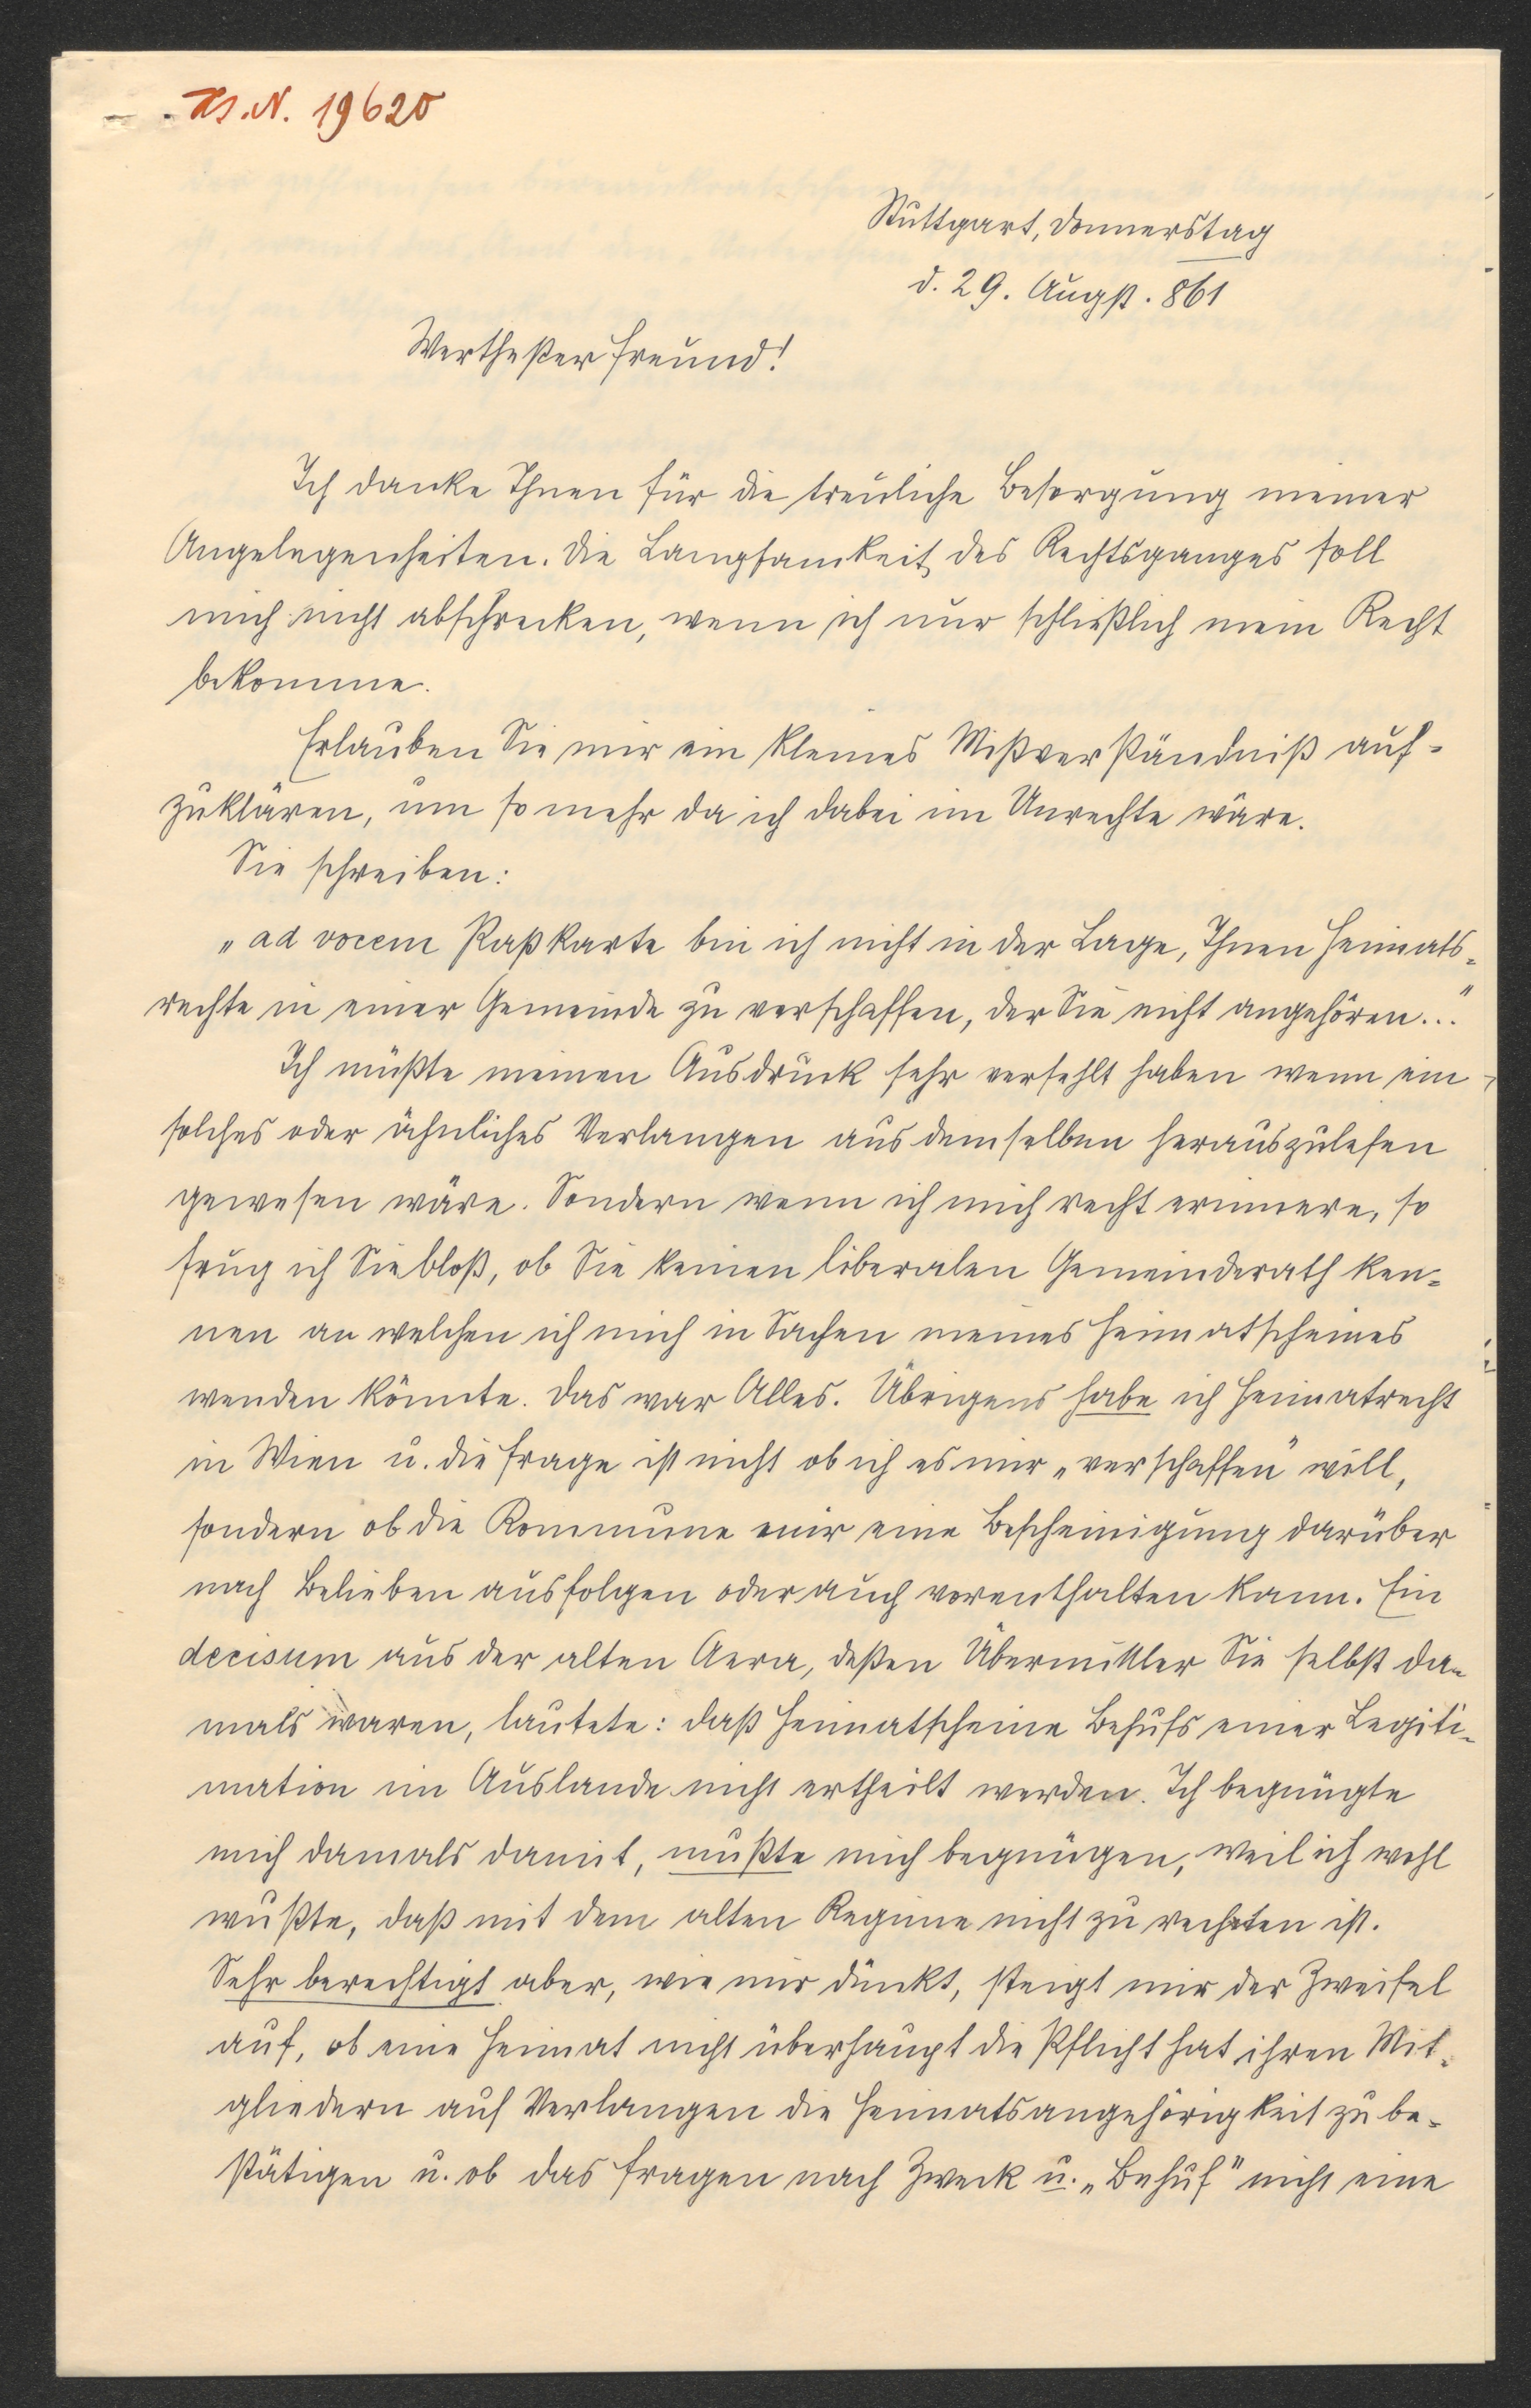 H.I.N. 19620
Stuttgart, Donnerstag
d. 29. Augst. 861
Werthester Freund!
Ich danke Ihnen für die treuliche Besorgung meiner
Angelegenheiten. Die Langsamkeit des Rechtsganges soll
mich nicht abschrecken, wenn ich nur schließlich mein Recht
bekomme.
Erlauben Sie mir ein kleines Mißverständniß auf-
zuklären, um so mehr da ich dabei im Unrechte wäre.
Sie schreiben:
„ad vocem Paßkarte bin ich nicht in der Lage, Ihnen Heimats-
rechte in einer Gemeinde zu verschaffen, der Sie nicht angehören..."
Ich müßte meinen Ausdruck sehr verfehlt haben wenn ein
solches oder ähnliches Verlangen aus demselben herauszulesen
gewesen wäre. Sondern wenn ich mich recht erinnere, so
frug ich Sie bloß, ob Sie keinen liberalen Gemeinderath ken-
nen an welchen ich mich in Sachen meines Heimatscheines
wenden könnte. Das war Alles. Übrigens habe ich Heimatrecht
in Wien u. die Frage ist nicht ob ich es mir „verschaffen" will,
sondern ob die Kommune mir eine Bescheinigung darüber
nach Belieben ausfolgen oder auch vorenthalten kann. Ein
decisum aus der alten Aera, deßen Übermittler Sie selbst da-
mals waren, lautete: daß Heimatscheine Behufs einer Legiti-
mation im Auslande nicht ertheilt werden. Ich begnügte
mich damals damit, mußte mich begnügen, weil ich wohl
wußte, daß mit dem alten Regime nicht zu rechten ist.
Sehr berechtigt aber, wie mir dünkt, steigt mir der Zweifel
auf, ob eine Heimat nicht überhaupt die Pflicht hat ihren Mit-
gliedern auf Verlangen die Heimatsangehörigkeit zu be-
stätigen u. ob das Fragen nach Zweck u. „Behuf" nicht eine